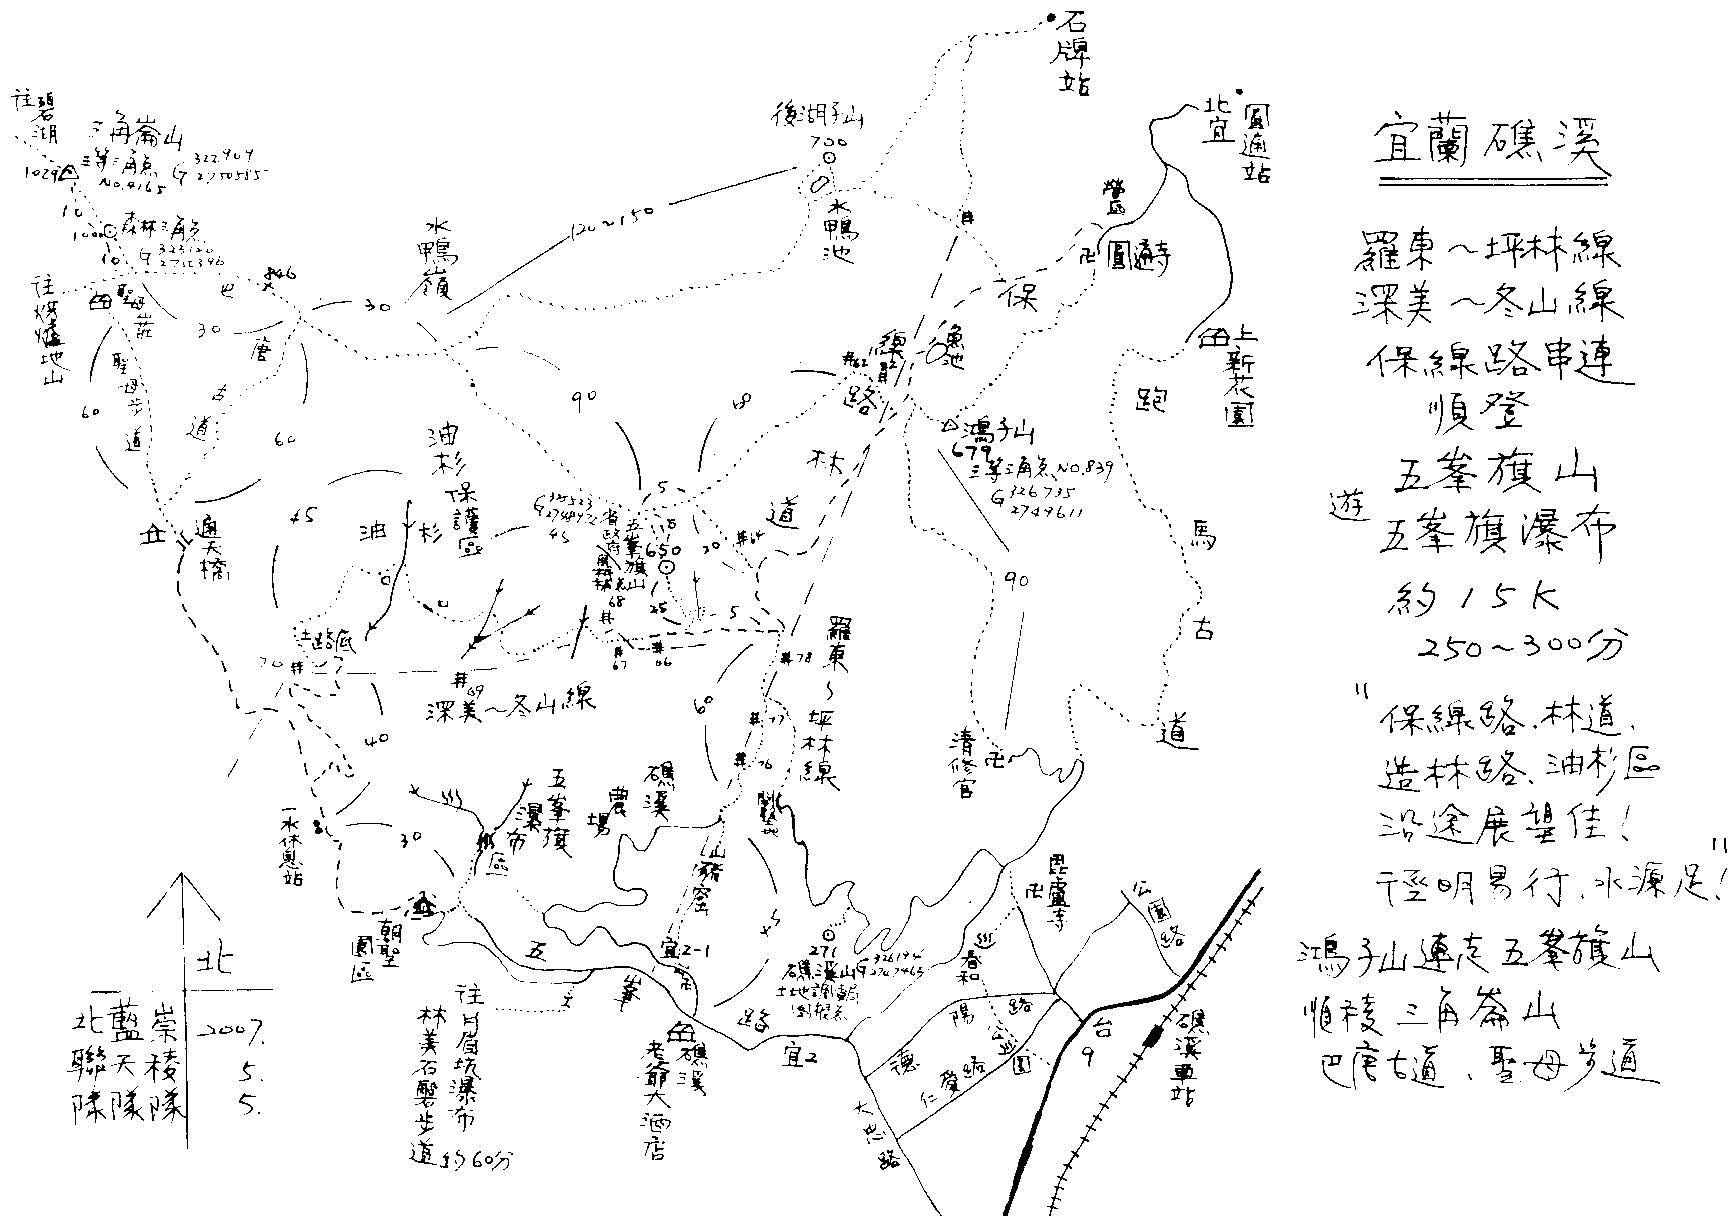 宜蘭礁溪
羅東～坪林線
深美～冬山線
保線路串連
順登
五峯旗山
遊
五峯旗瀑布
約15K
250～300分
"保線路.林道.
造林路、油杉區
沿途展望佳!
徑明易行、水源足!"
鴻子山連走五峯旗山
順稜三角崙山
巴唐古道、聖母步道
石牌站
北宜
圓通站
後湖子山
700
水鴨池
往碧湖
三角崙山
三等三角點
NO.4165
G 322909
2750585
1029
10
森林三角點
1000
10
往烘爐地山
聖母莊
846
巴唐古道
30
30
水鴨嶺
120～150
營區
卍圓通寺
保線路
漁池
上新花園
跑馬古道
聖母步道
60
60
90
鴻子山
679
三等三角點NO.839
G 326735
2749611
油杉保護區
油杉
45
45
通天橋
五峯旗山
650
5
20
#64
林道
68
25
#67
#66
5
#78
羅東～坪林線
90
70
#69
深美～冬山線
40
60
#77
#76
清修宮
卍
礁溪農場
五峯旗瀑布
30
朝聖園區
山豬窟
宜2-1
271
礁溪山
卍毘盧寺
公園路
春和
五峯路
宜2
德陽路
仁愛路
公園
台9
礁溪車站
大忠路
礁溪老爺大酒店
往月眉坑瀑布
林美石磐步道約60分
北
藍天隊
崇稜隊
北聯隊
2007.
5.
5.